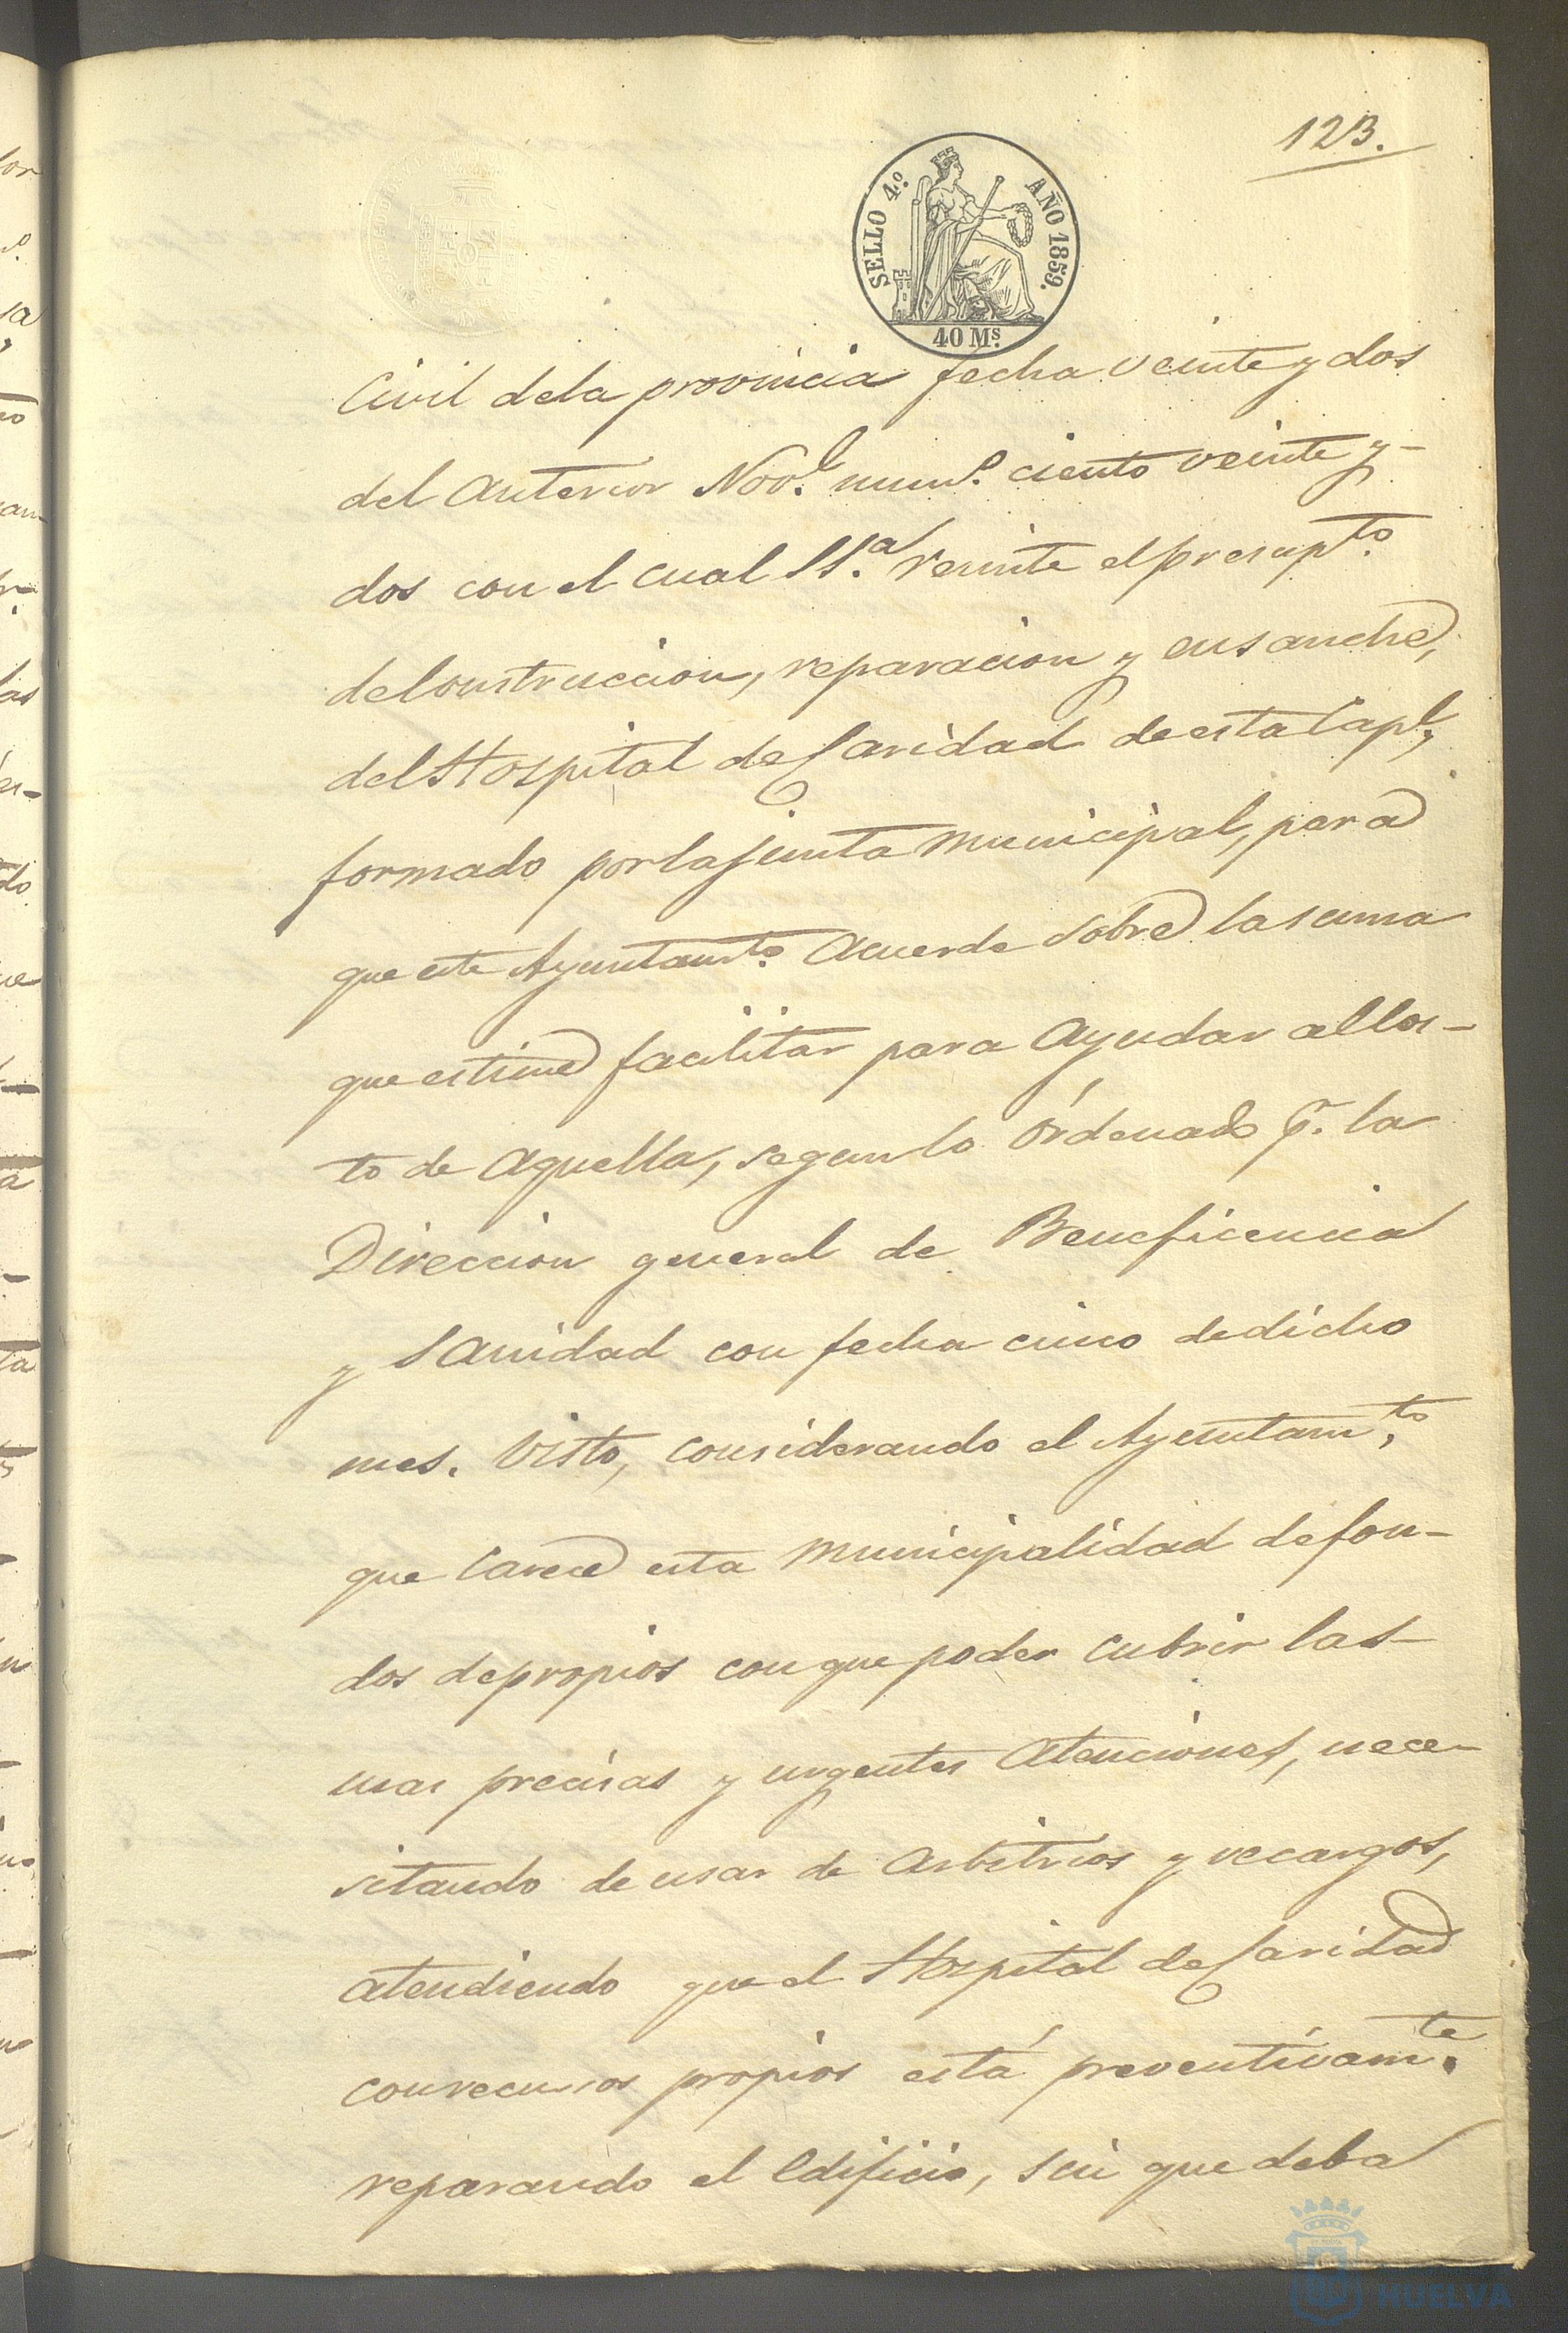 123.
SELLO 4.º AÑO 1859.
40 Ms.
Civil dela provincia fecha veinte y dos
del anterior Nov.e num.º ciento veinte y-
dos con el cual S S.a remite el presup.to
de Construccion, reparacion y ensanche,
del Hospital de Caridad de esta Cap.l,
formado por la Junta Municipal, para
que este Ayuntam.to acuerde sobre la suma
que estime facilitar para ayudar al Cos-
to de aquella, segun lo órdenado p.r la
Direccion general de Beneficencia
y Sanidad con fecha cinco de dicho
mes. Visto, considerando el Ayuntam.to
que Carece esta Municipalidad de fon-
dos de propios con que poder cubrir las-
mas precisas y urgentes atenciones, nece-
sitando de usar de arbitrios y recargos,
atendiendo que el Hospital de Caridad
con recursos propios está preventivam.te
reparando el Edificio, sin que deba
HUELVA